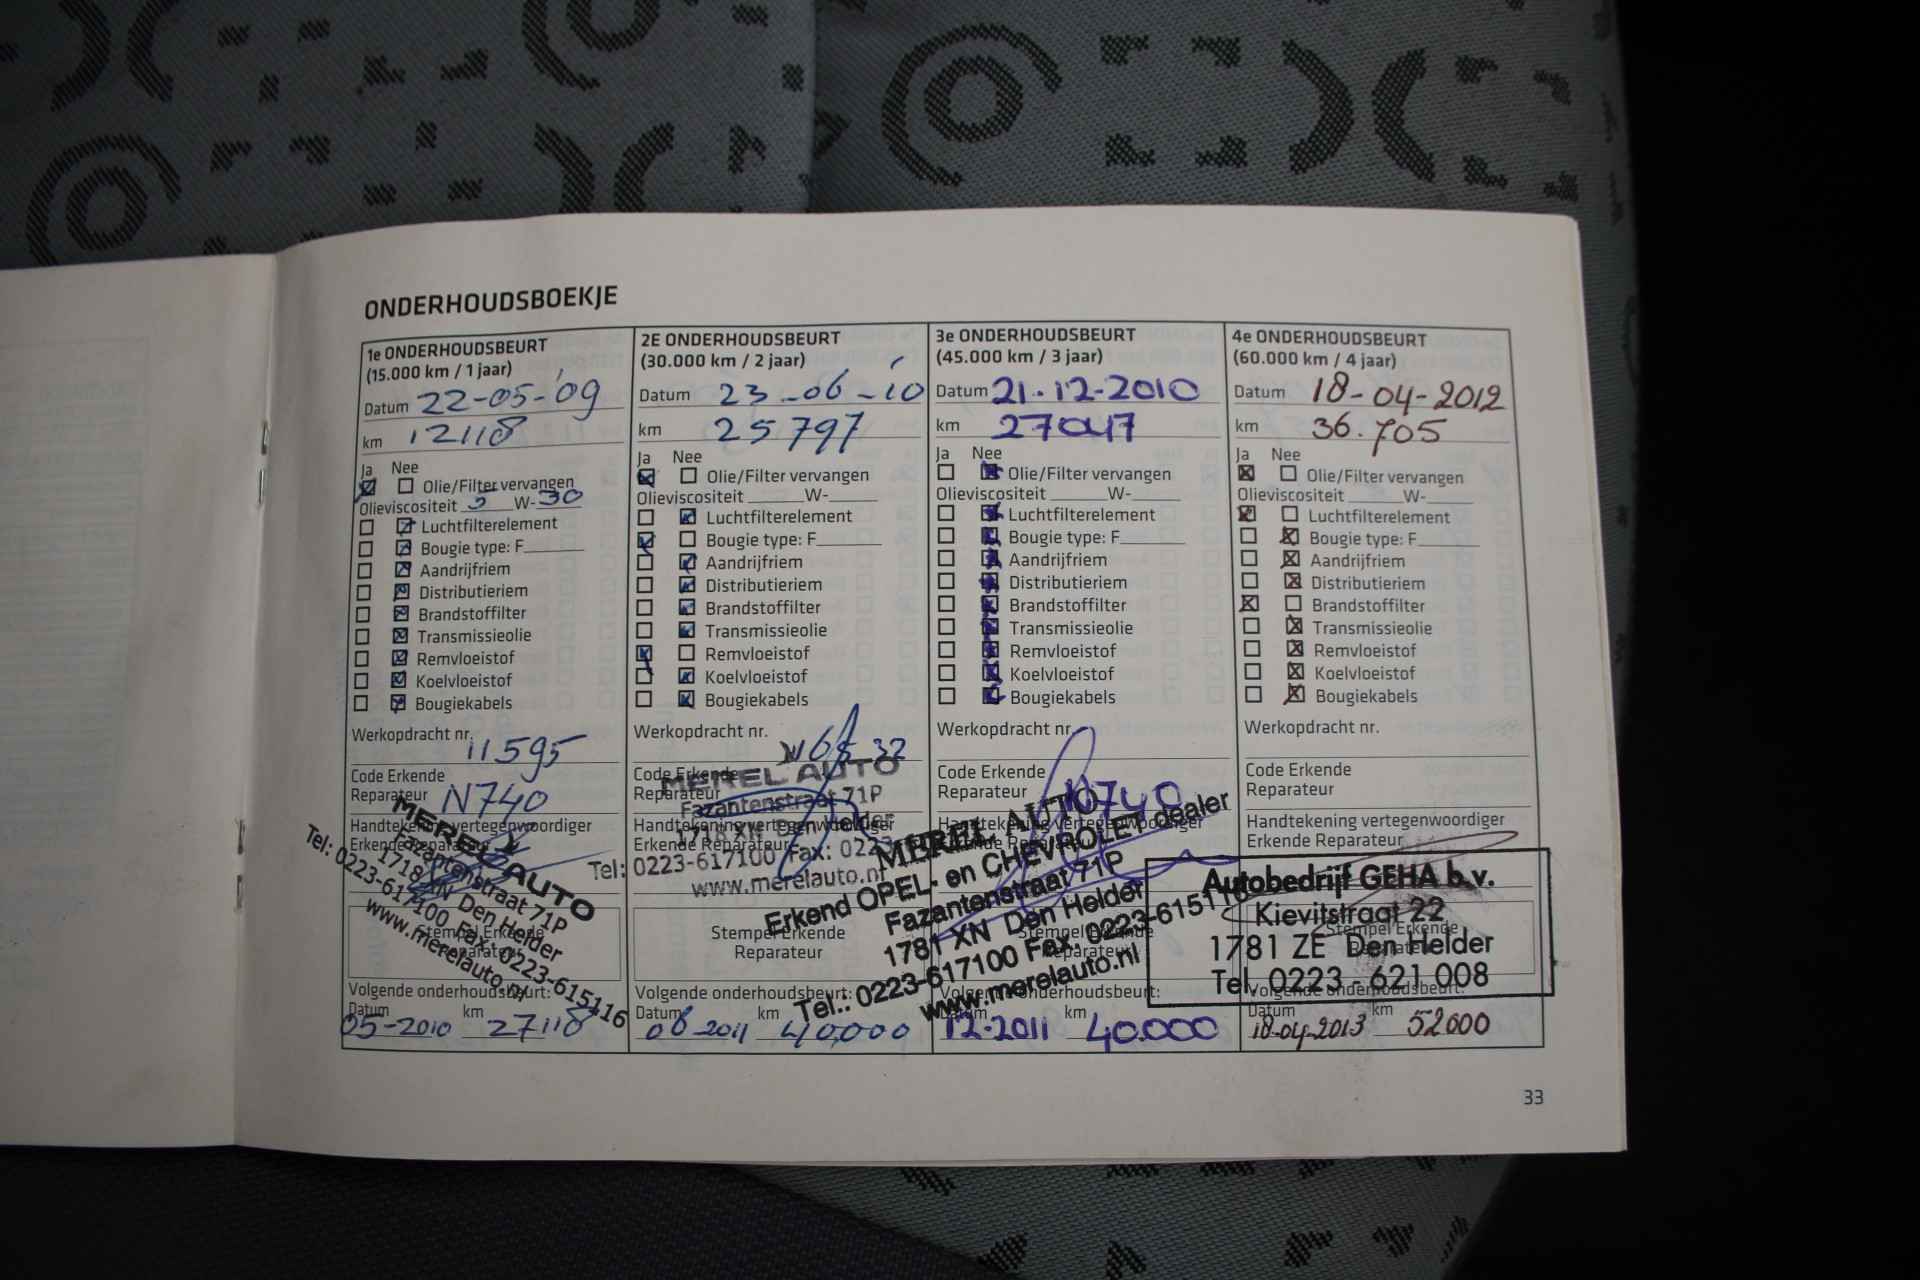 ONDERHOUDSBOEKJE
1e ONDERHOUDSBEURT
(15.000 km / 1 jaar)
Datum 22-05-'09
km 12118
Ja Nee
Olie/Filter vervangen
Olieviscositeit 5 W-30
Luchtfilterelement
Bougie type: F
Aandrijfriem
Distributieriem
Brandstoffilter
Transmissieolie
Remvloeistof
Koelvloeistof
Bougiekabels
Werkopdracht nr.
11595
Code Erkende
Reparateur N740
Handtekening vertegenwoordiger
Erkende Reparateur
MEREL AUTO
Fazantenstraat 71P
1718 XN Den Helder
Tel: 0223-617100 Fax: 0223-615116
www.merelauto.nl
Stempel Erkende
Reparateur
Volgende onderhoudsbeurt:
Datum km
05-2010 27118
2E ONDERHOUDSBEURT
(30.000 km / 2 jaar)
Datum 23-06-'10
km 25797
Ja Nee
Olie/Filter vervangen
Olieviscositeit W-
Luchtfilterelement
Bougie type: F
Aandrijfriem
Distributieriem
Brandstoffilter
Transmissieolie
Remvloeistof
Koelvloeistof
Bougiekabels
Werkopdracht nr.
Code Erkende
Reparateur
MEREL AUTO
Fazantenstraat 71P
1718 XN Den Helder
Handtekening vertegenwoordiger
Erkende Reparateur
Tel: 0223-617100 Fax: 0223-
www.merelauto.nl
Stempel Erkende
Reparateur
Volgende onderhoudsbeurt:
Datum km
06-2011 40.000
3e ONDERHOUDSBEURT
(45.000 km / 3 jaar)
Datum 21-12-2010
km 27047
Ja Nee
Olie/Filter vervangen
Olieviscositeit W-
Luchtfilterelement
Bougie type: F
Aandrijfriem
Distributieriem
Brandstoffilter
Transmissieolie
Remvloeistof
Koelvloeistof
Bougiekabels
Werkopdracht nr.
Code Erkende
Reparateur N740
Handtekening vertegenwoordiger
Erkende Reparateur
MEREL AUTO
Erkend OPEL- en CHEVROLET dealer
Fazantenstraat 71P
1781 XN Den Helder
Tel.: 0223-617100 Fax. 0223-615116
www.merelauto.nl
Stempel Erkende
Reparateur
Volgende onderhoudsbeurt:
km
12-2011 40.000
4e ONDERHOUDSBEURT
(60.000 km / 4 jaar)
Datum 18-04-2012
km 36.705
Ja Nee
Olie/Filter vervangen
Olieviscositeit W-
Luchtfilterelement
Bougie type: F
Aandrijfriem
Distributieriem
Brandstoffilter
Transmissieolie
Remvloeistof
Koelvloeistof
Bougiekabels
Werkopdracht nr.
Code Erkende
Reparateur
Handtekening vertegenwoordiger
Erkende Reparateur
Autobedrijf GEHA b.v.
Kievitstraat 22
1781 ZE Den Helder
Tel. 0223 - 621 008
Stempel Erkende
Reparateur
Volgende onderhoudsbeurt:
Datum km
18-04-2013 52000
33